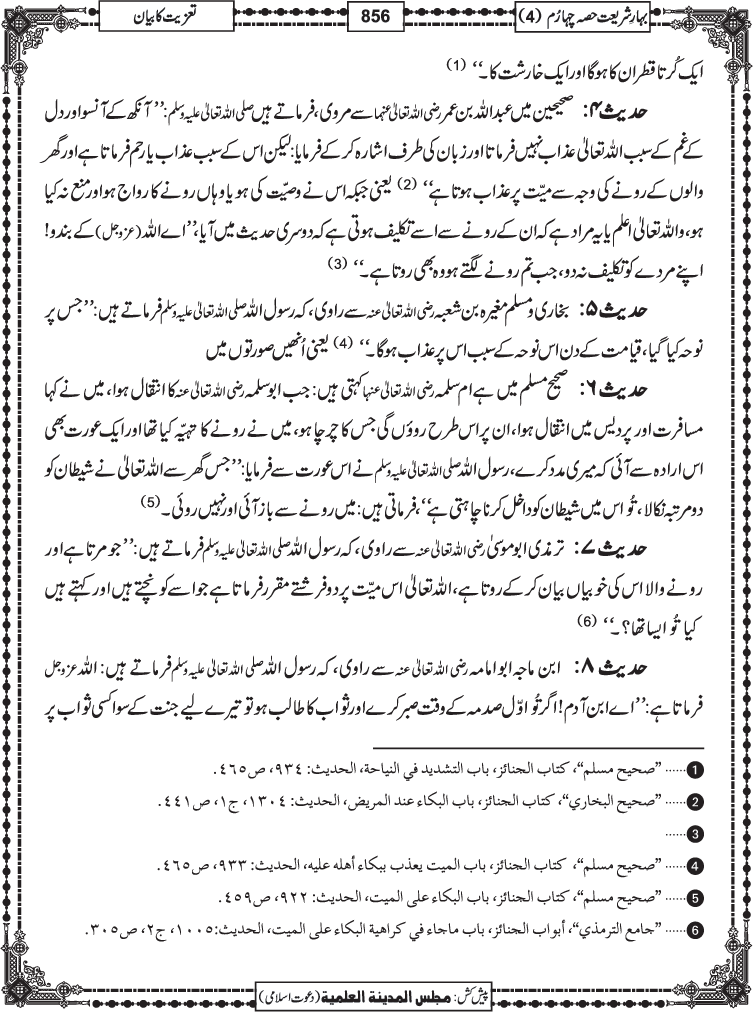 بہارِشریعت حصہ چہارُم (4)
856
تعزیت کا بیان
ایک کُرتا قطران کا ہوگا اور ایک خارِشت کا۔‘‘ (1)
حدیث ۴: صحیحین میں عبداللہ بن عمر رضی اللہ تعالیٰ عنہما سے مروی، فرماتے ہیں صلی اللہ تعالیٰ علیہ وسلم: ’’آنکھ کے آنسو اور دل
کے غم کے سبب اللہ تعالیٰ عذاب نہیں فرماتا اور زبان کی طرف اشارہ کرکے فرمایا: لیکن اس کے سبب عذاب یا رحم فرماتا ہے اور گھر
والوں کے رونے کی وجہ سے میّت پر عذاب ہوتا ہے‘‘ (2) یعنی جبکہ اس نے وصیّت کی ہو یا وہاں رونے کا رواج ہو اور منع نہ کیا
ہو، واللہ تعالیٰ اعلم یا یہ مراد ہے کہ ان کے رونے سے اسے تکلیف ہوتی ہے کہ دوسری حدیث میں آیا، ’’اے اللہ (عزوجل) کے بندو!
اپنے مردے کو تکلیف نہ دو، جب تم رونے لگتے ہو وہ بھی روتا ہے۔‘‘ (3)
حدیث ۵: بخاری و مسلم مغیرہ بن شعبہ رضی اللہ تعالیٰ عنہ سے راوی، کہ رسول اللہ صلی اللہ تعالیٰ علیہ وسلم فرماتے ہیں: ’’جس پر
نوحہ کیا گیا، قیامت کے دن اس نوحہ کے سبب اس پر عذاب ہوگا۔‘‘ (4) یعنی اُنھیں صورتوں میں
حدیث ۶: صحیح مسلم میں ہے ام سلمہ رضی اللہ تعالیٰ عنہا کہتی ہیں: جب ابو سلمہ رضی اللہ تعالیٰ عنہ کا انتقال ہوا، میں نے کہا
مسافرت اور پردیس میں انتقال ہوا، ان پر اس طرح روؤں گی جس کا چرچا ہو، میں نے رونے کا تہیّہ کیا تھا اور ایک عورت بھی
اس ارادہ سے آئی کہ میری مدد کرے، رسول اللہ صلی اللہ تعالیٰ علیہ وسلم نے اس عورت سے فرمایا: ’’جس گھر سے اللہ تعالیٰ نے شیطان کو
دو مرتبہ نکالا، تُو اس میں شیطان کو داخل کرنا چاہتی ہے‘‘، فرماتی ہیں: میں رونے سے باز آئی اور نہیں روئی۔ (5)
حدیث ۷: ترمذی ابو موسیٰ رضی اللہ تعالیٰ عنہ سے راوی، کہ رسول اللہ صلی اللہ تعالیٰ علیہ وسلم فرماتے ہیں: ’’جو مرتا ہے اور
رونے والا اس کی خوبیاں بیان کرکے روتا ہے، اللہ تعالیٰ اس میّت پر دو فرشتے مقرر فرماتا ہے جو اسے کونچتے ہیں اور کہتے ہیں
کیا تُو ایسا تھا؟۔‘‘ (6)
حدیث ۸: ابن ماجہ ابو امامہ رضی اللہ تعالیٰ عنہ سے راوی، کہ رسول اللہ صلی اللہ تعالیٰ علیہ وسلم فرماتے ہیں: اللہ عزوجل
فرماتا ہے: ’’اے ابن آدم! اگر تُو اوّل صدمہ کے وقت صبر کرے اور ثواب کا طالب ہو تو تیرے لیے جنت کے سوا کسی ثواب پر
1 ...... ”صحيح مسلم“، كتاب الجنائز، باب التشديد في النياحة، الحديث: ٩٣٤، ص٤٦٥.
2 ...... ”صحيح البخاري“، كتاب الجنائز، باب البكاء عند المريض، الحديث: ١٣٠٤، ج١، ص٤٤١.
3 ......
4 ...... ”صحيح مسلم“، كتاب الجنائز، باب الميت يعذب ببكاء أهله عليه، الحديث: ٩٣٣، ص٤٦٥.
5 ...... ”صحيح مسلم“، كتاب الجنائز، باب البكاء على الميت، الحديث: ٩٢٢، ص٤٥٩.
6 ...... ”جامع الترمذي“، أبواب الجنائز، باب ماجاء في كراهية البكاء على الميت، الحديث: ١٠٠٥، ج٢، ص٣٠٥.
پیش کش: مجلس المدينة العلمية (دعوت اسلامی)